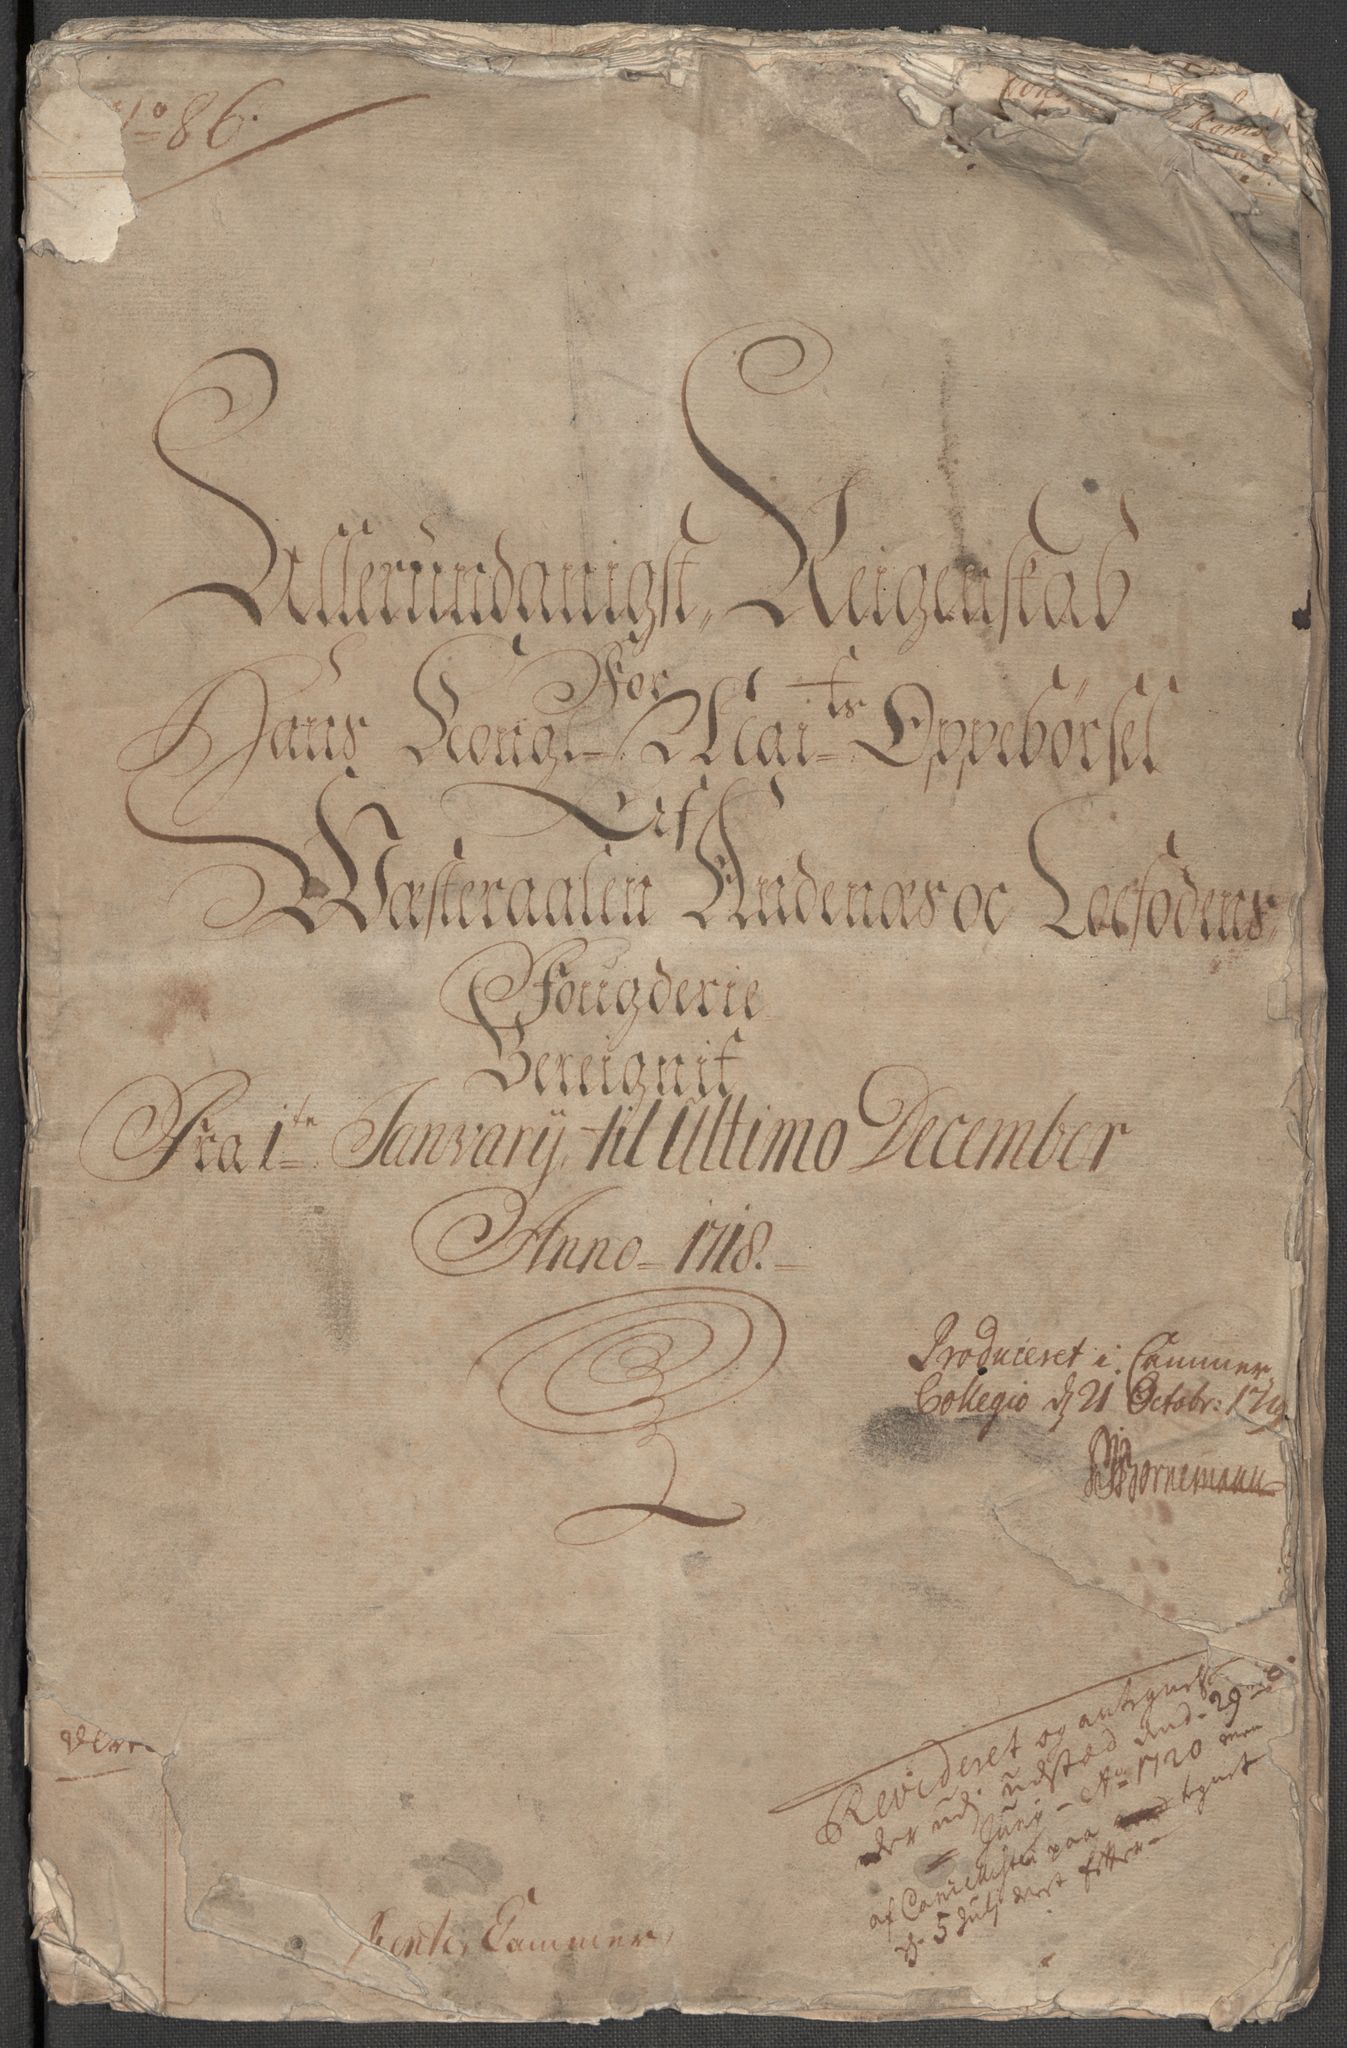 No 86.
Allerundanigst Reigenskab
For
Hans Kongl. Mai:ts Oppebørsel
Af
Wæsteraalen Andenæs oc Loefodens
Fougderie
Bereignit
Fra 1te Janvarij til Ultimo December
Anno 1718.
Produceret i Cammer
Collegio d. 21 Octobr: 171
Bornemann
Revideret og antegnet
der udj udstæd und. 29
Junij Ao 1720
af paa tegnet
d. 5 Julj efter
Rente Cammer